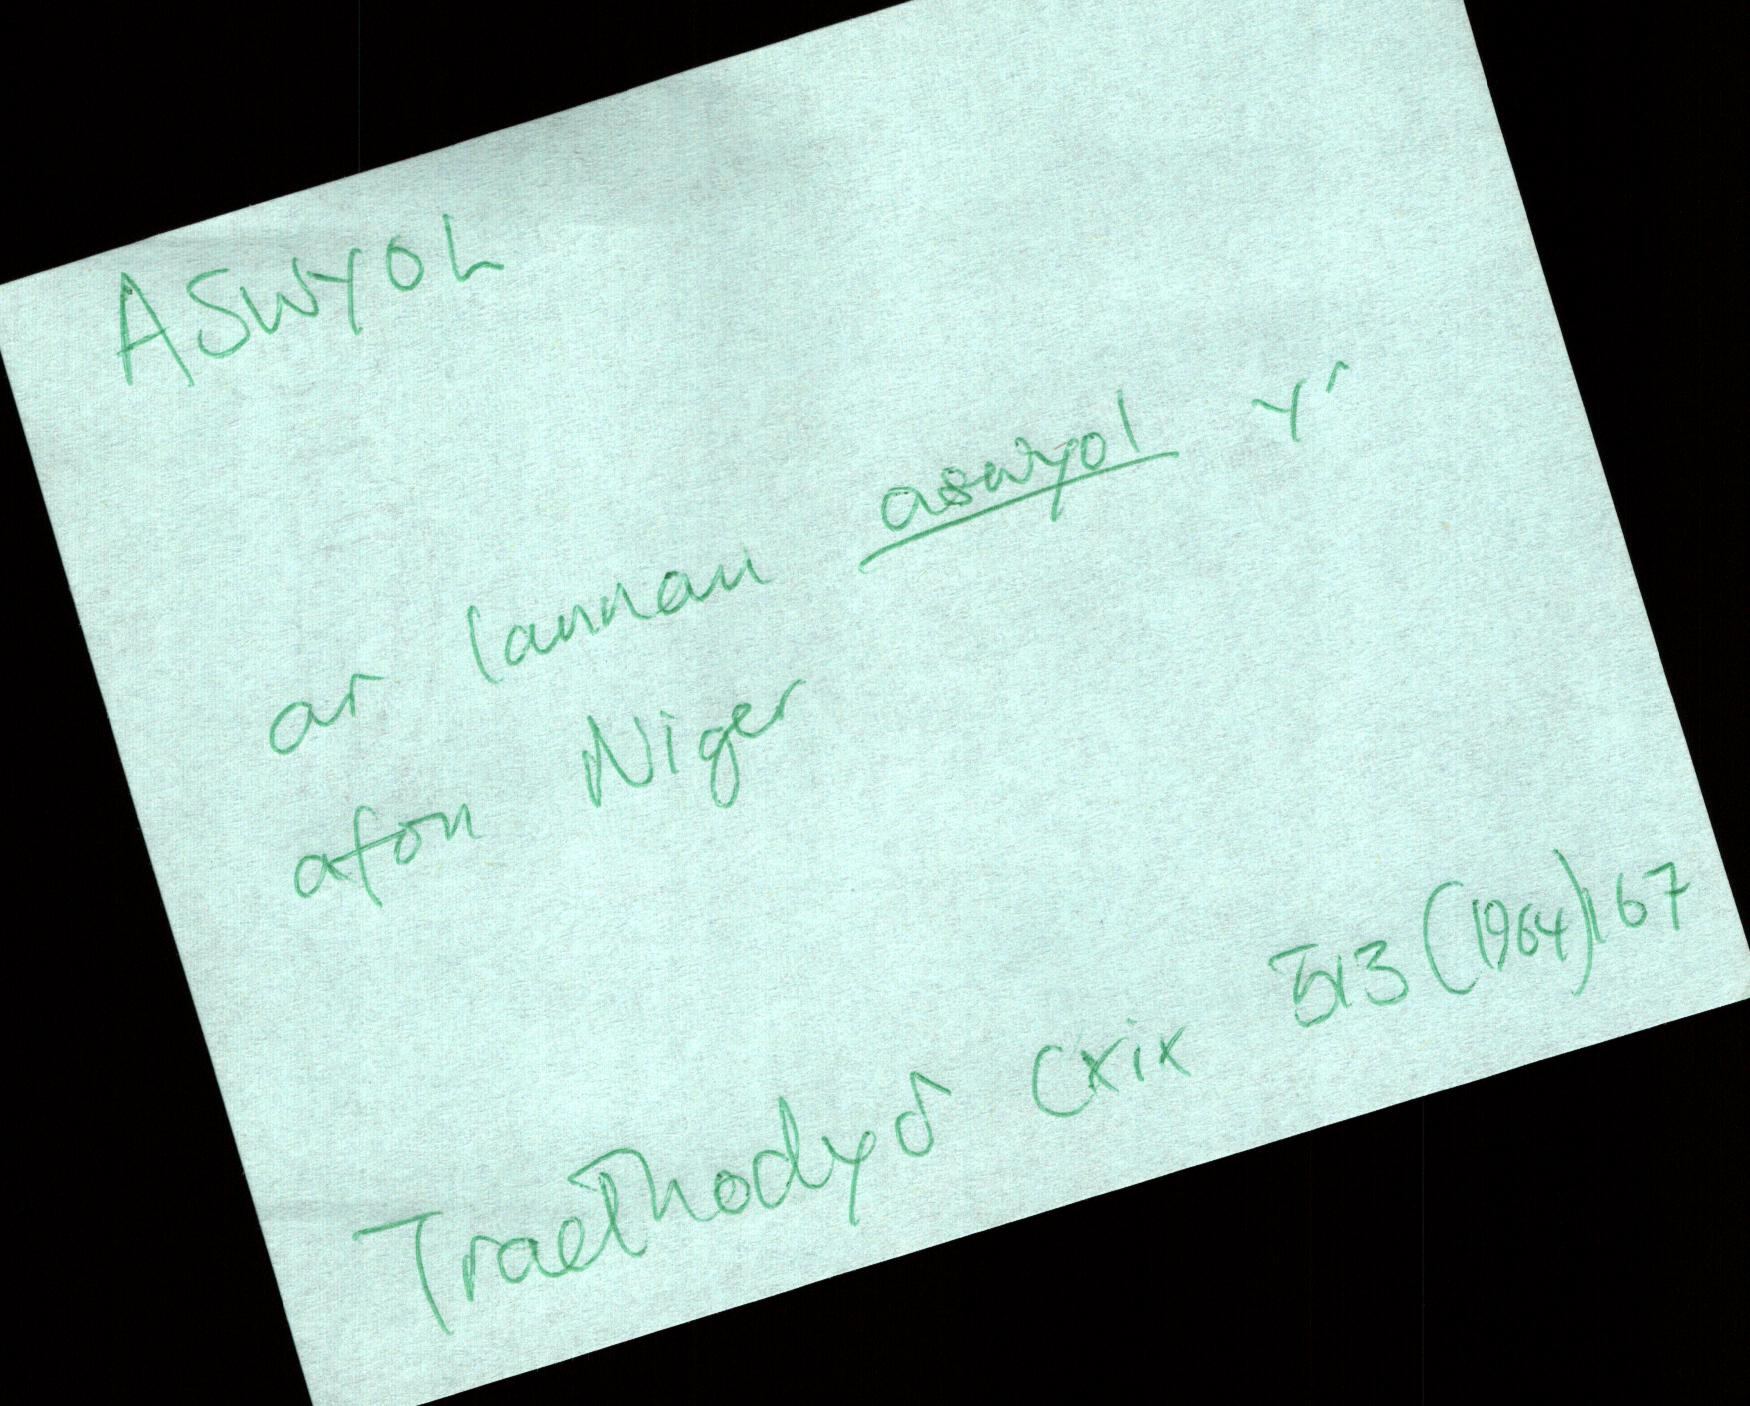 ASWYOL
ar lannau aswyol yr
afon Niger
Traethodyδ cxix 513 (1964) 167